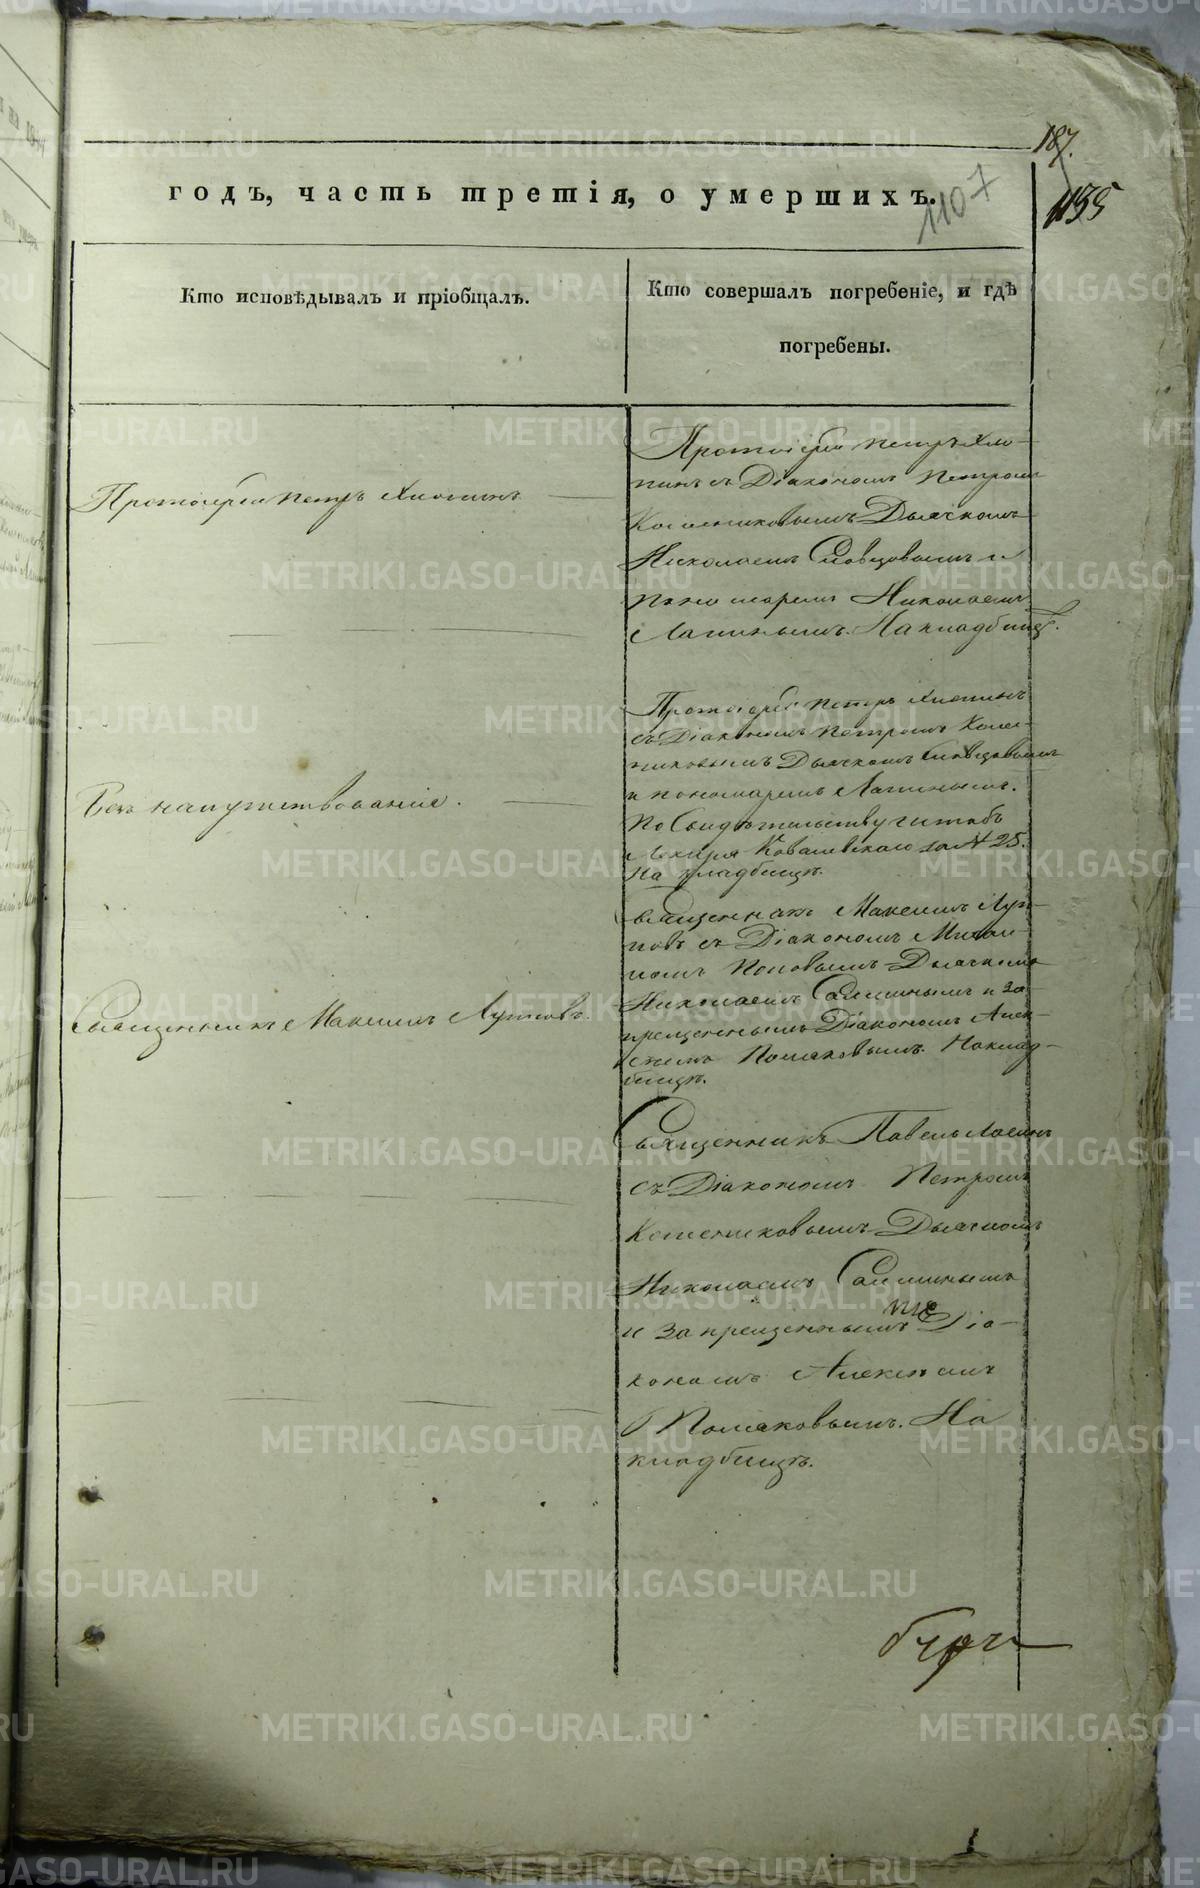 187.
годъ, часть третія, о умершихъ.
1107
1135
Кто исповѣдывалъ и пріобщалъ.
Кто совершалъ погребеніе, и гдѣ
погребены.
Протоіерей Петръ Хлопинъ
Протоіерей Петръ Хло-
пинъ съ Діакономъ Петромъ
Дьячкомъ
Николаемъ Словцовымъ и
Пономаремъ Николаемъ
Лапинымъ. На кладбищѣ.
Безъ напутствованія.
Протоіерей Петръ Хлопинъ
съ Діакономъ Петромъ
Дьячкомъ Словцовымъ
и пономаремъ Лапинымъ.
По Свидѣтельству штабъ
Лекаря Ковалевскаго за № 25.
На кладбищѣ.
Священникъ Максимъ Лупповъ.
Священникъ Максимъ Луп-
повъ съ Діакономъ Михаи-
ломъ Поповымъ Дьячкомъ
Николаемъ и за-
прещеннымъ Діакономъ Алек-
сѣемъ Поляковымъ. На клад-
бищѣ.
Священникъ Павелъ
съ Діакономъ Петромъ
Дьячкомъ
Николаемъ
и запрещеннымъ Діа-
кономъ Алексѣемъ
Поляковымъ. На
кладбищѣ.